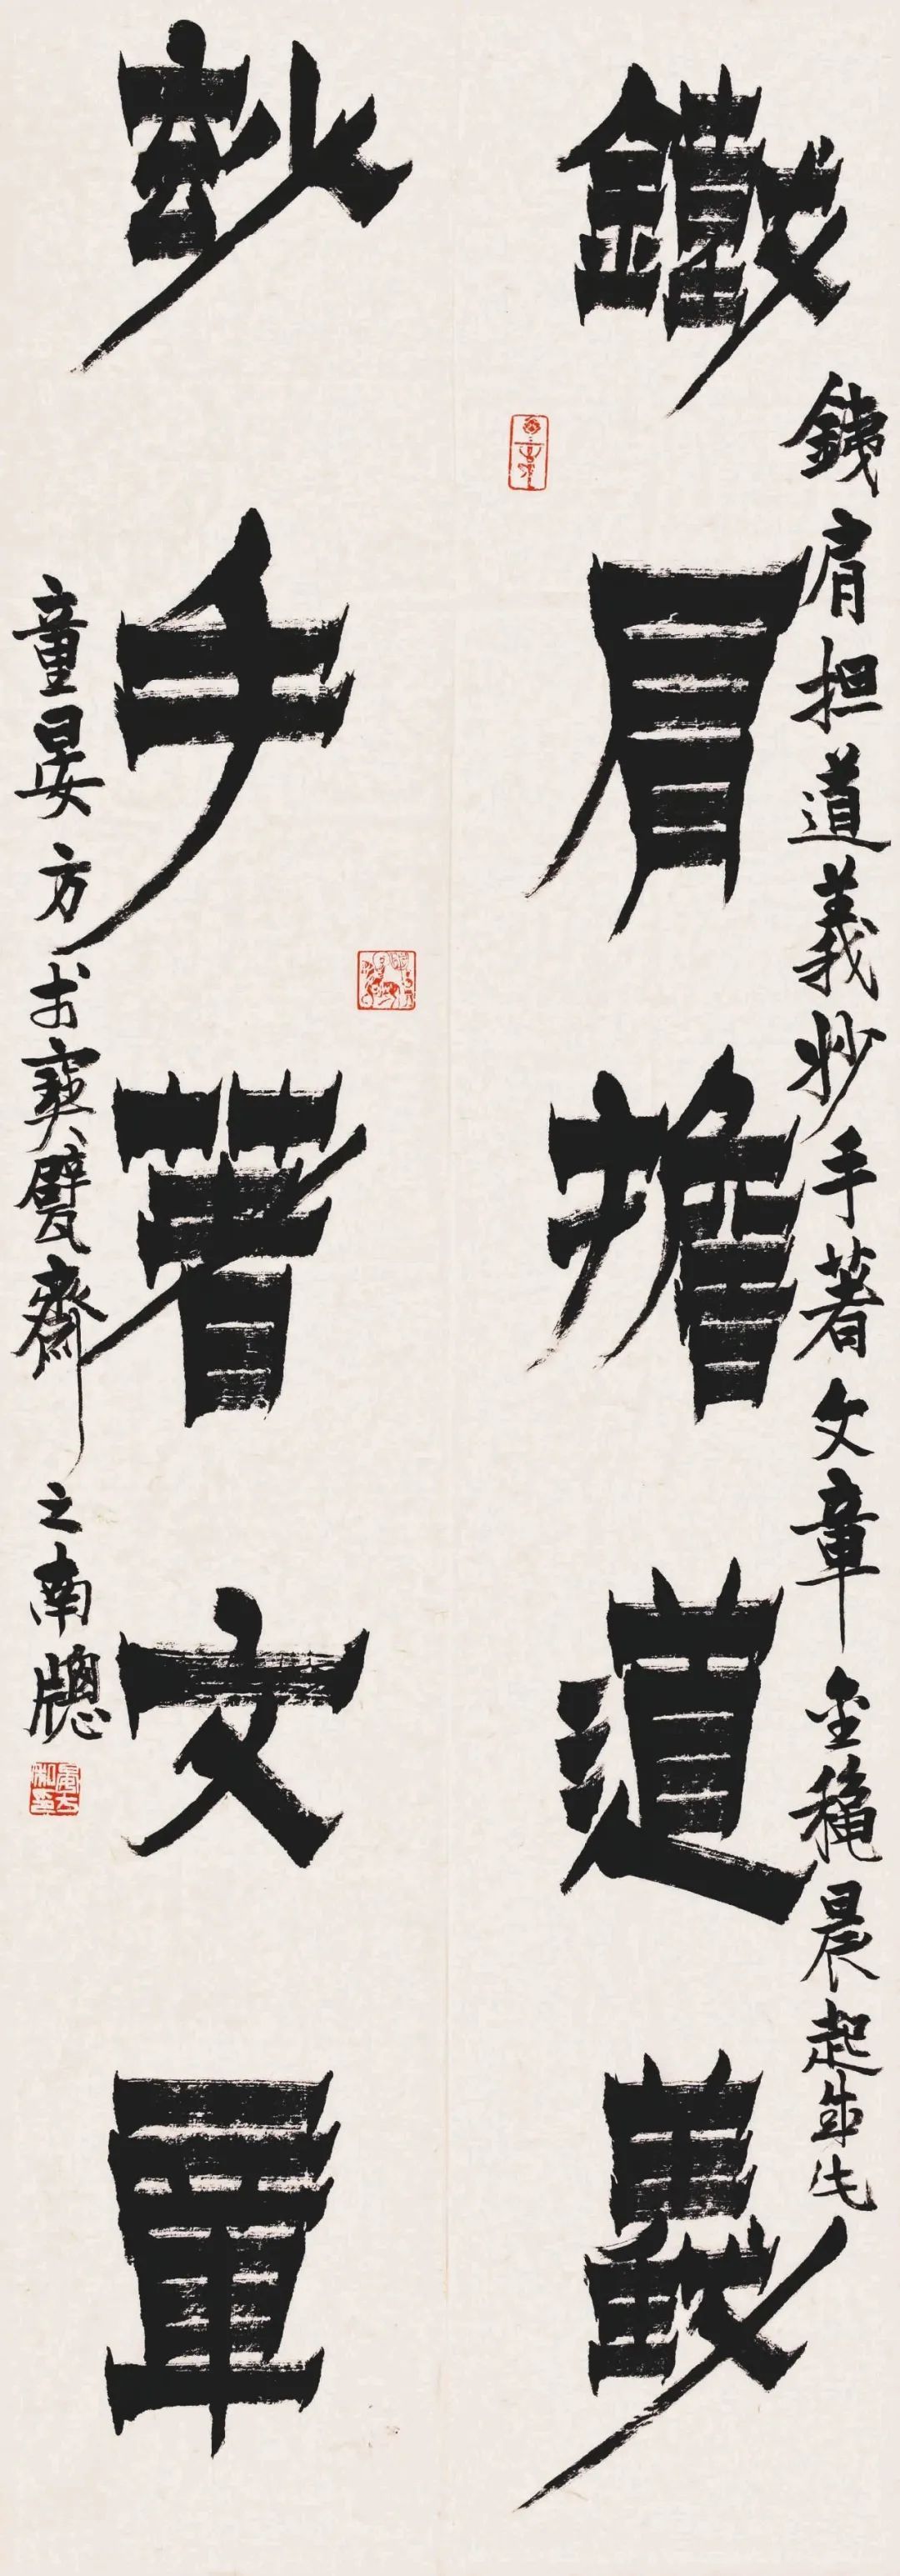 鐵肩擔道義
銕肩担道義妙手著文章金龝晨起生生
玅手著文章
童晏方书寶甓齋之南牕